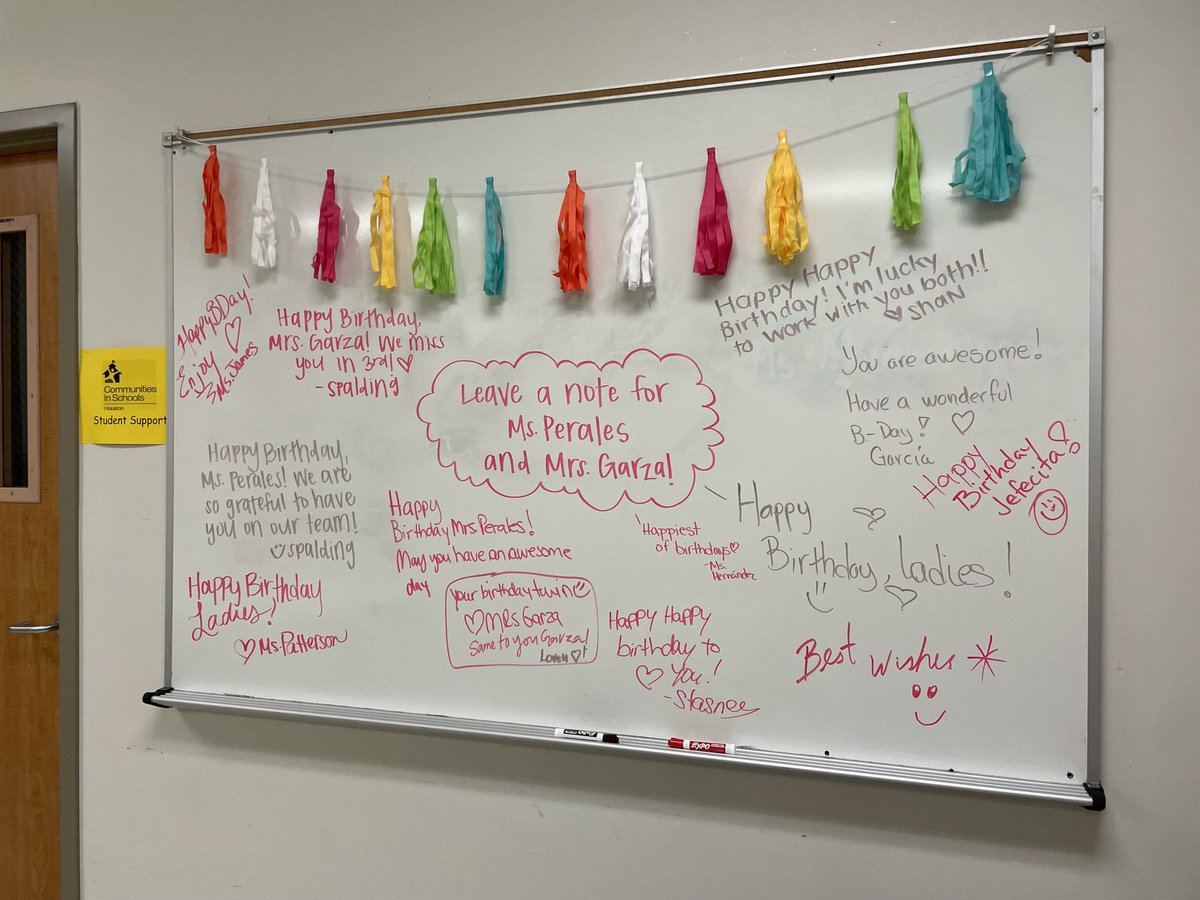 Communities
In Schools
Houston
Student Support
Happy BDay!
Enjoy
Ms. James
Happy Birthday,
Mrs. Garza! We miss
you in 3rd!
-spalding
Leave a note for
Ms. Perales
and Mrs. Garza!
Happy Happy
Birthday! I'm lucky
to work with you both!!
Shan
You are awesome!
Have a wonderful
B-Day!
García
Happy
Birthday
Jefecita!
Happy Birthday,
Ms. Perales! We are
so grateful to have
you on our team!
spalding
Happy
Birthday Mrs Perales!
May you have an awesome
day
your birthday twin
Mrs Garza
Same to you Garza!
Happiest
of birthdays
-Ms.
Hernández
Happy
Birthday, Ladies!
Happy Birthday
Ladies!
Ms. Patterson
Happy Happy
birthday to
You!
-Stasney
Best wishes
EXPO